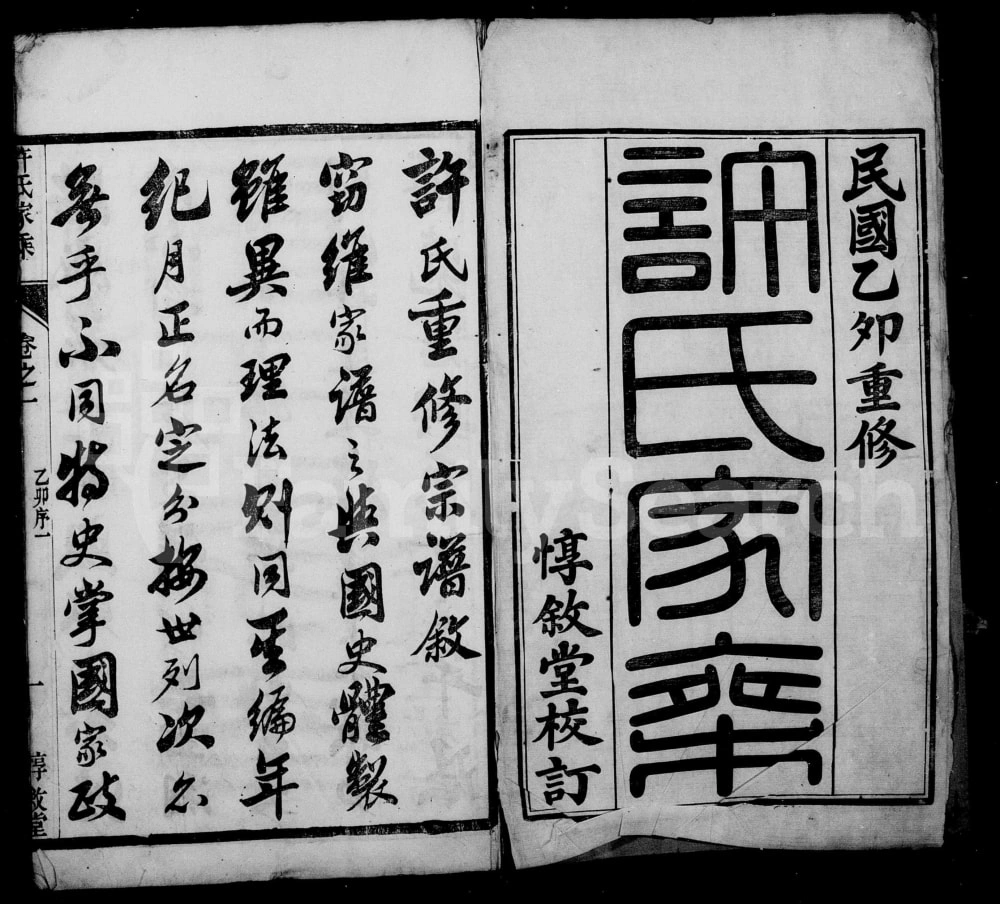 民國乙卯重修
許氏家乘
惇敘堂校訂
許氏重修宗譜敘
竊維家譜之與國史體製
雖異而理法則同至編年
紀月正名定分按世列次亦
無乎不同特史掌國家政
許氏家乘
卷之一
乙卯序一
一
惇敘堂
FamilySearch